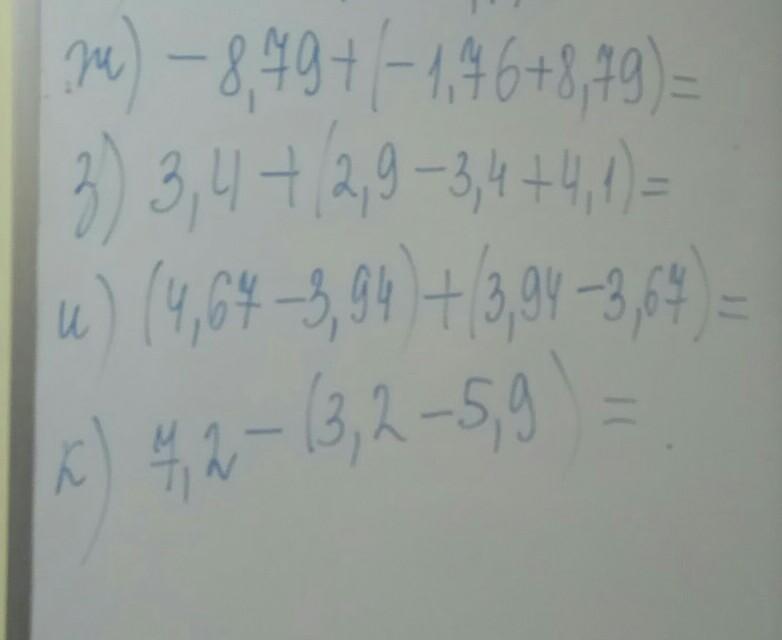 ж) -8,79+(-1,76+8,79)=
з) 3,4+(2,9-3,4+4,1)=
и) (4,67-3,94)+(3,94-3,67)=
к) 7,2-(3,2-5,9)=